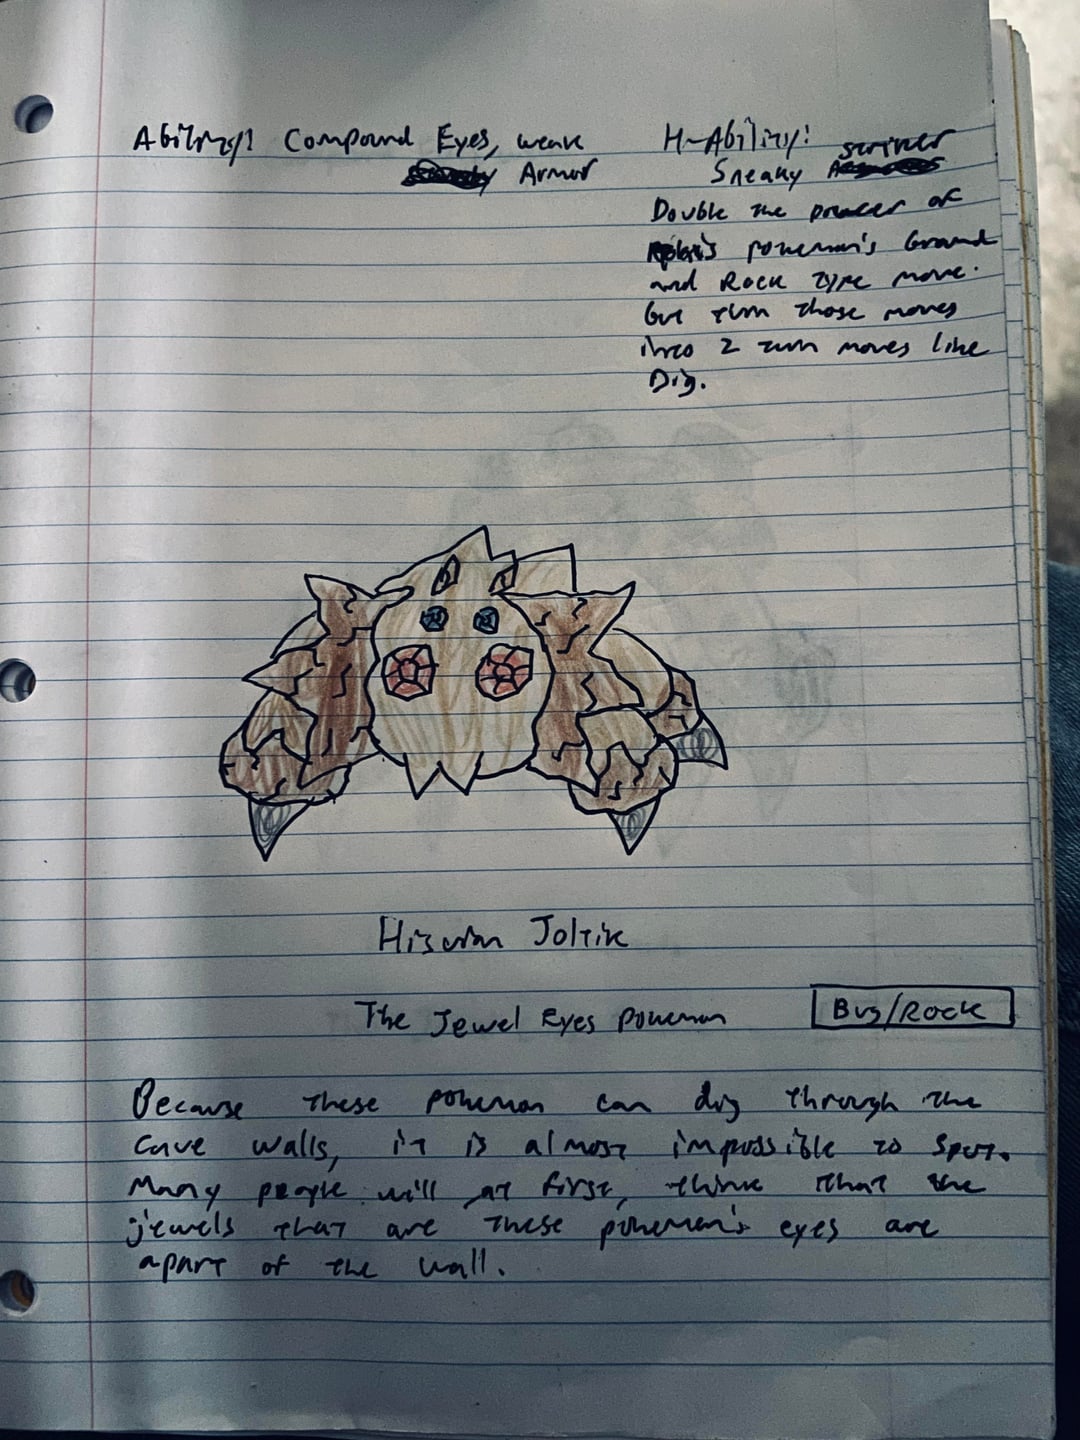 Ability: Compound Eyes, weak Armor
H-Ability: Sneaky striker
Double the power of
pokemon's Ground
and Rock type move.
But turn those moves
into 2 turn moves like
Dig.
Hisuian Joltik
The Jewel Eyes Pokemon
Bug/Rock
Because these pokemon can dig through the
cave walls, it is almost impossible to spot.
Many people will at first, think that the
jewels that are these pokemon's eyes are
apart of the wall.